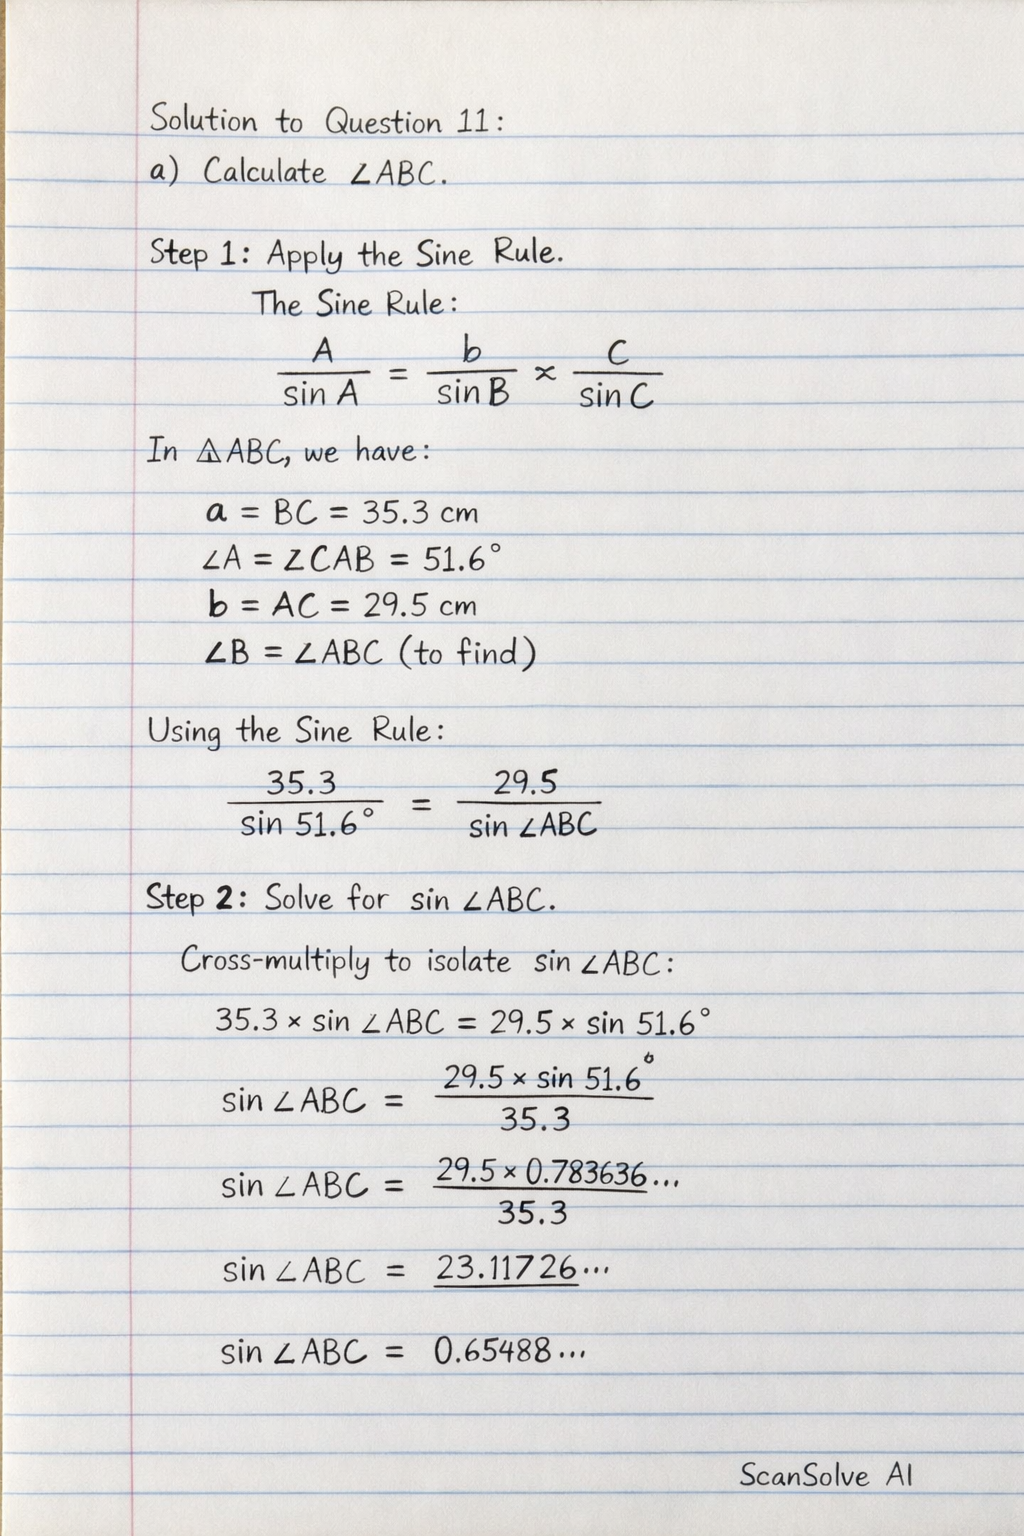 Solution to Question 11:
a) Calculate ∠ABC.
Step 1: Apply the Sine Rule.
The Sine Rule:
A/sin A = b/sin B × C/sin C
In △ABC, we have:
a = BC = 35.3 cm
∠A = ∠CAB = 51.6°
b = AC = 29.5 cm
∠B = ∠ABC (to find)
Using the Sine Rule:
35.3/sin 51.6° = 29.5/sin ∠ABC
Step 2: Solve for sin ∠ABC.
Cross-multiply to isolate sin ∠ABC:
35.3 × sin ∠ABC = 29.5 × sin 51.6°
sin ∠ABC = 29.5 × sin 51.6°/35.3
sin ∠ABC = 29.5 × 0.783636.../35.3
sin ∠ABC = 23.11726...
sin ∠ABC = 0.65488...
ScanSolve AI